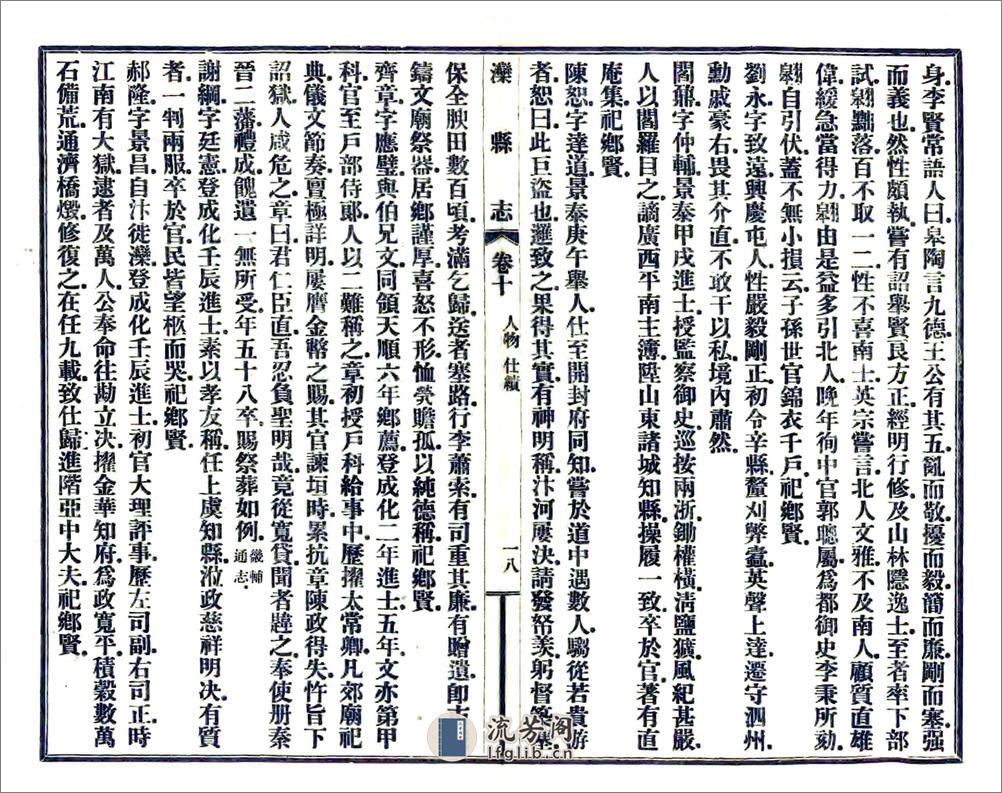 身李賢常語人曰皋陶言九德王公有其五亂而敬擾而毅簡而廉剛而塞强
而義也然性頗執嘗有詔舉賢良方正經明行修及山林隱逸士至者率下部
試翱黜落百不取一二性不喜南士英宗嘗言北人文雅不及南人顧質直雄
偉緩急當得力翱由是益多引北人晚年徇中官郭聰屬爲都御史李秉所劾
翱自引伏蓋不無小損云子孫世官錦衣千戶祀鄉賢
劉永字致遠興慶屯人性嚴毅剛正初令辛縣釐刈弊蠹英聲上達遷守泗州
勳戚豪右畏其介直不敢干以私境內肅然
閻鼐字仲輔景泰甲戌進士授監察御史巡按兩浙鋤權橫淸鹽獷風紀甚嚴
人以閻羅目之謫廣西平南主簿陞山東諸城知縣操履一致卒於官著有直
庵集祀鄉賢
陳恕字達道景泰庚午舉人仕至開封府同知嘗於道中遇數人騶從若貴游
者恕曰此巨盜也邏致之果得其實有神明稱汴河屢決請發帑羨躬督築
灤縣志 卷十 人物 仕績 一八
保全腴田數百頃考滿乞歸送者塞路行李蕭索有司重其廉有贈遺卽
鑄文廟祭器居鄉謹厚喜怒不形恤煢贍孤以純德稱祀鄉賢
齊章字應璧與伯兄文同領天順六年鄉薦登成化二年進士五年文亦第甲
科官至戶部侍郞人以二難稱之章初授戶科給事中歷擢太常卿凡郊廟祀
典儀文節奏亶極詳明屢膺金幣之賜其官諫垣時累抗章陳政得失忤旨下
詔獄人咸危之章曰君仁臣直吾忍負聖明哉竟從寬貸聞者韙之奉使册秦
晉二藩禮成餽遺一無所受年五十八卒賜祭葬如例畿輔通志
謝綱字廷憲登成化壬辰進士素以孝友稱任上虞知縣涖政慈祥明決有質
者一判兩服卒於官民皆望柩而哭祀鄉賢
郝隆字景昌自汴徙灤登成化壬辰進士初官大理評事歷左司副右司正時
江南有大獄逮者及萬人公奉命往勘立決擢金華知府爲政寬平積穀數萬
石備荒通濟橋燬修復之在任九載致仕歸進階亞中大夫祀鄉賢
流芳阁
lfglib.cn